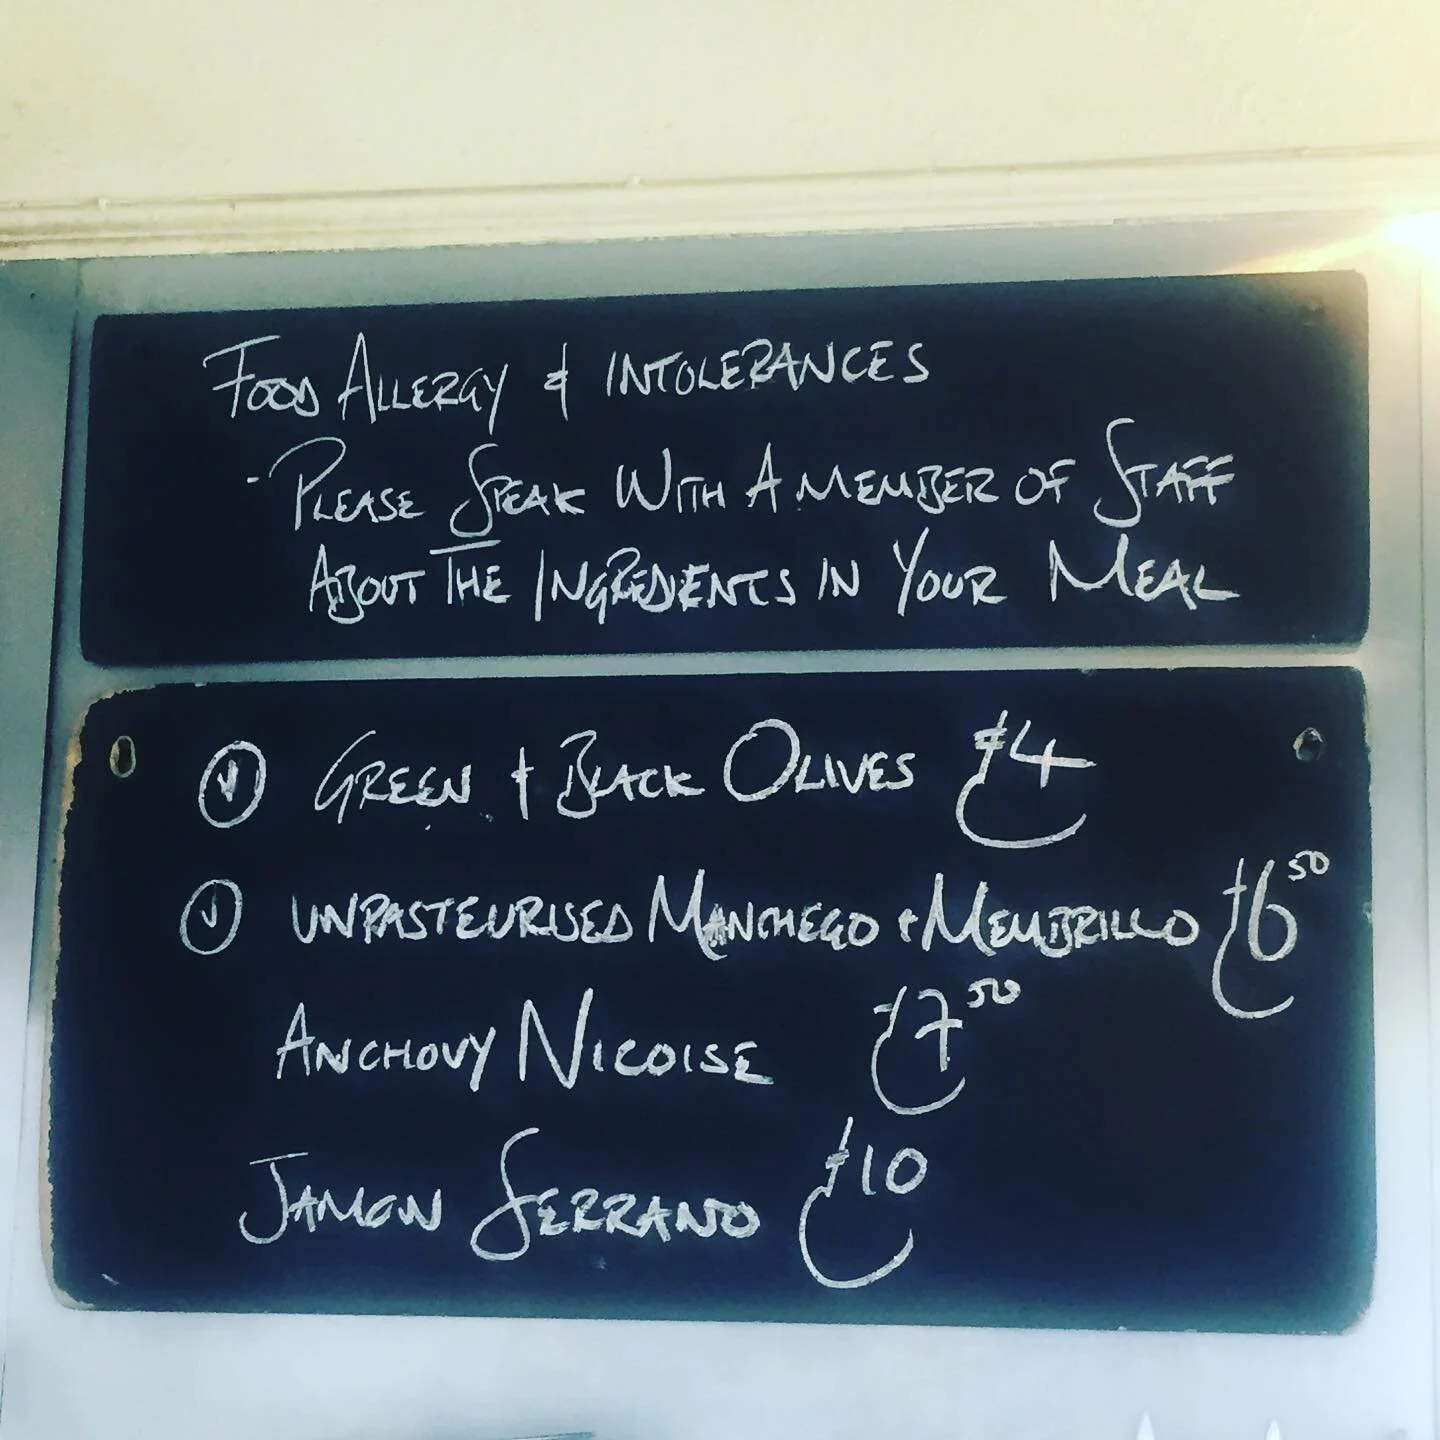 FOOD ALLERGY & INTOLERANCES
- PLEASE SPEAK WITH A MEMBER OF STAFF
ABOUT THE INGREDIENTS IN YOUR MEAL
V GREEN & BLACK OLIVES £4
V UNPASTEURISED MANCHEGO & MEMBRILLO £6 50
ANCHOVY NICOISE £7 50
JAMON SERRANO £10